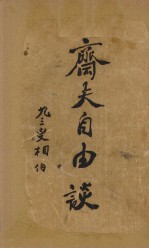 齋夫自由談
九三叟相伯